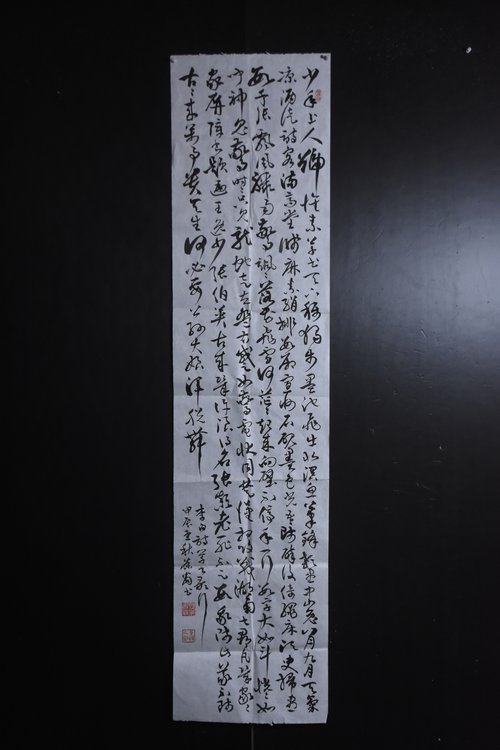 少年上人號懷素草书天下称独步墨池飞出北溟鱼笔锋杀尽中山兔八月九月天氣
凉酒徒詞客满高堂笺麻素絹排数厢宣州石砚墨色光吾师醉後倚绳床须臾扫尽
数千张飘风骤雨驚飒飒落花飞雪何茫茫起来向壁不停手一行数字大如斗怳怳如
闻神鬼驚時時只见龙蛇走左盘右蹙如驚電状同楚漢相攻戰湖南七郡凡幾家家
家屏障书题遍王逸少张伯英古来几许浪得名张颠老死不足数我师此義不师
古古来萬事贵天生何必要公孙大娘浑脱舞
李白诗草书歌行
甲辰秋书